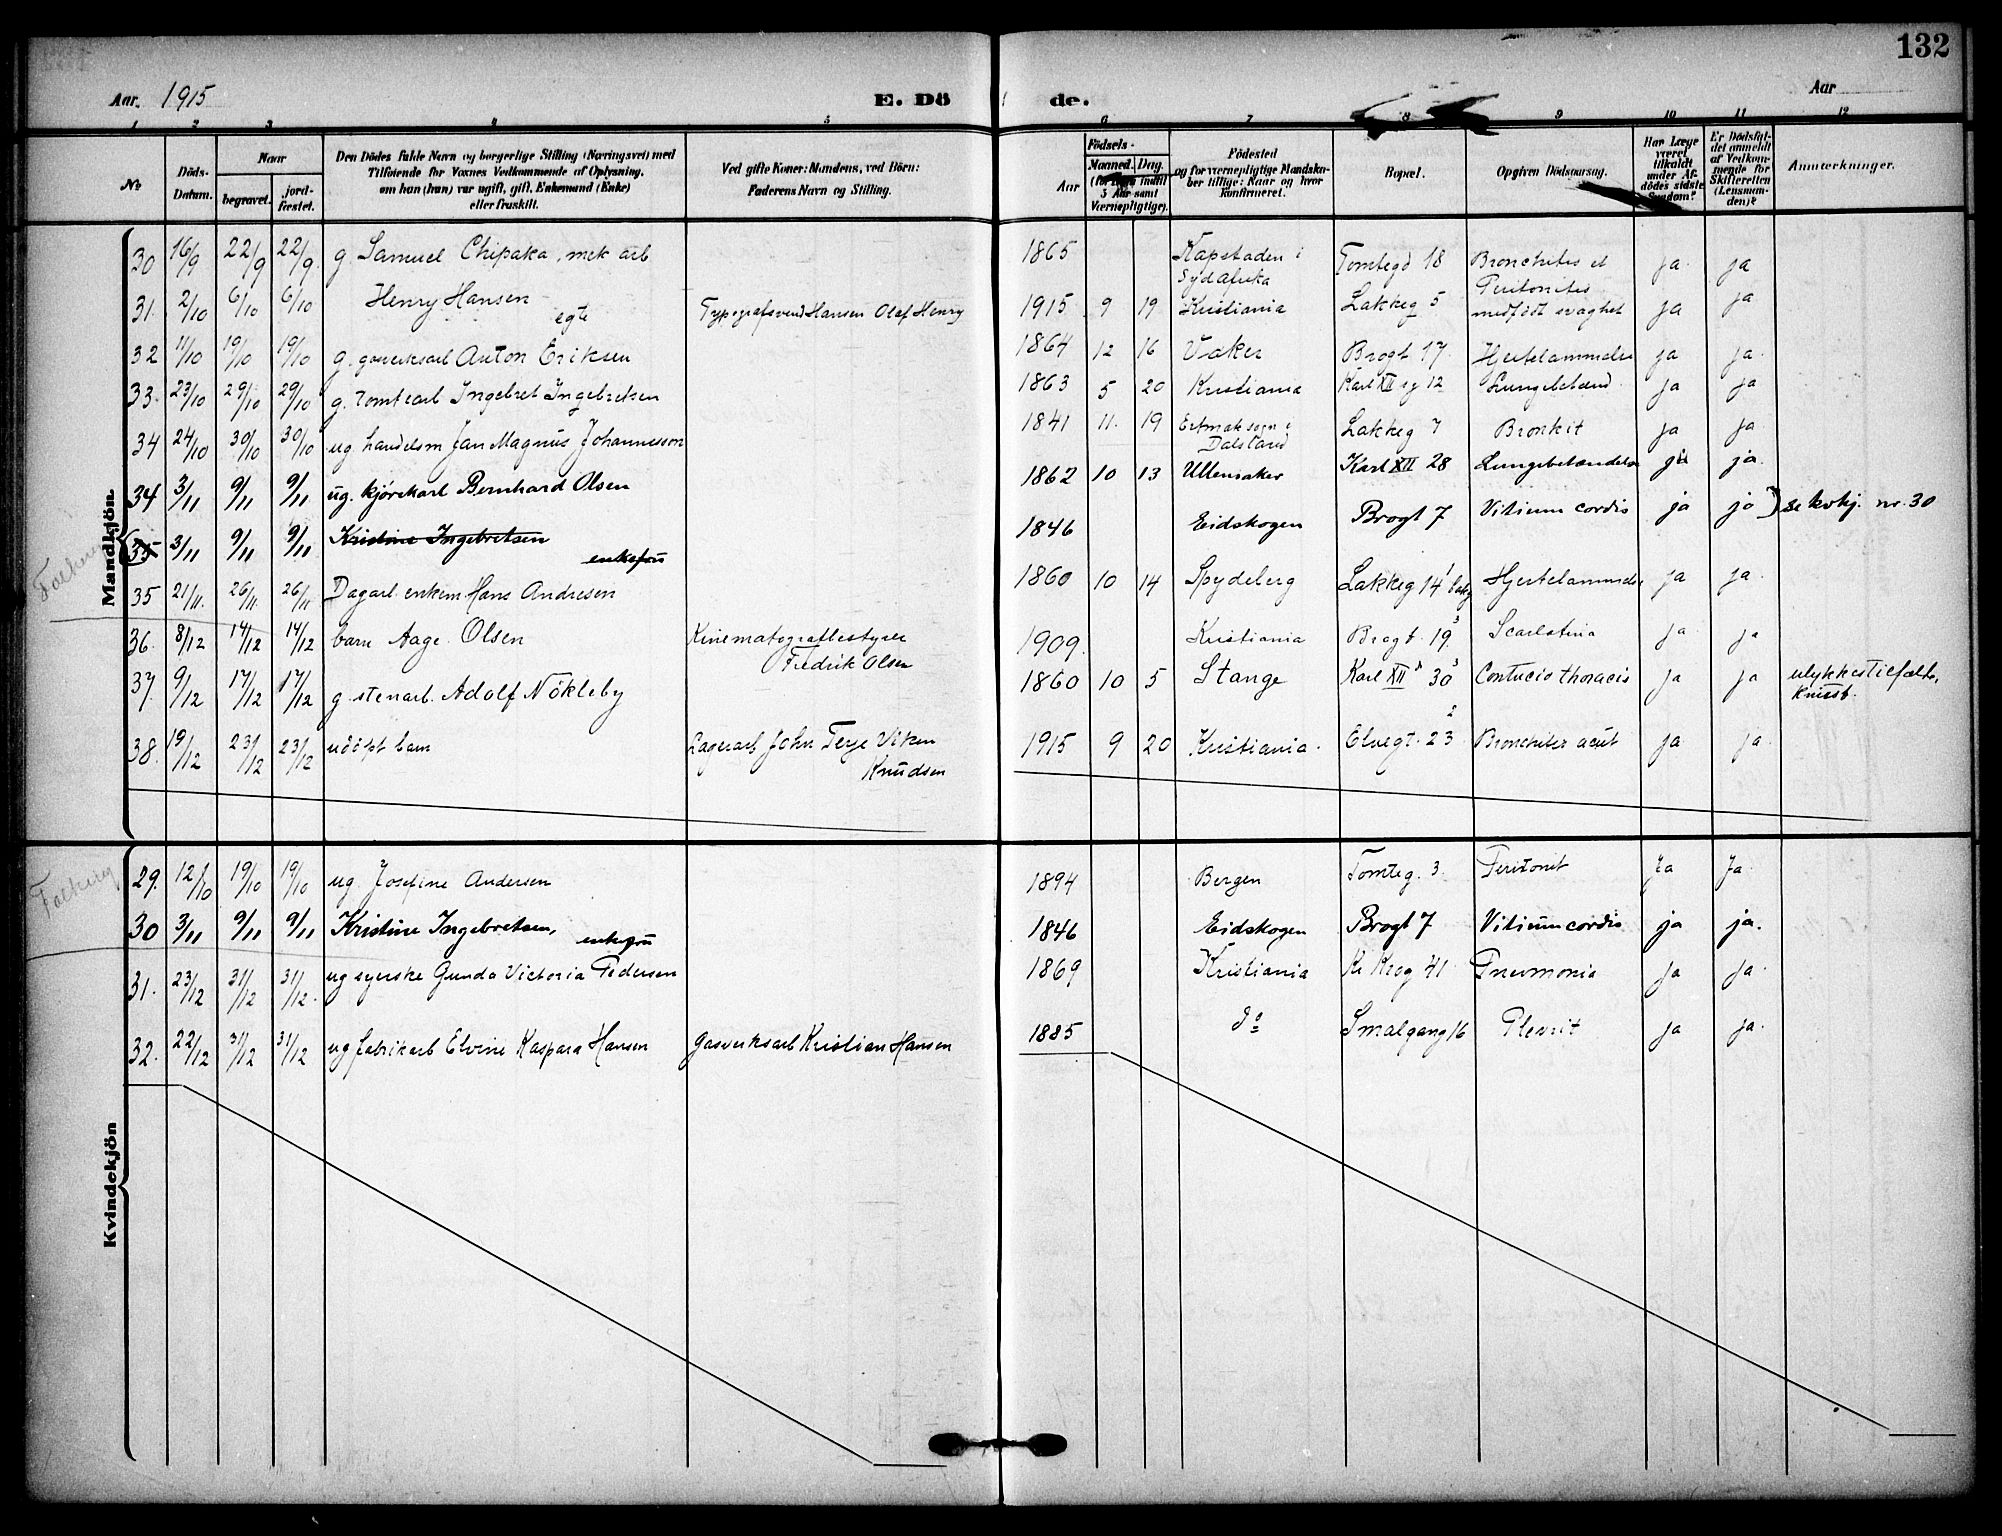 132
Aar. 1915 E. Dö de. Aar
1 2 3 4 5 6 7 8 9 10 11 12
No
Döds-Datum.
Naar
begravet.
jord-fæstet.
Den Dödes fulde Navn og borgerlige Stilling (Næringsvei) med
Tilföiende for Voxnes Vedkommende af Oplysning,
om han (hun) var ugift, gift, Enkemand (Enke)
eller fraskilt.
Ved gifte Koner: Mandens, ved Börn:
Faderens Navn og Stilling.
Födsels-
Aar
Maaned. Dag.
(for Börn indtil
5 Aar samt
Værnepligtige).
Födested
og for værnepligtige Mandskaber tillige: Naar og hvor
konfirmeret.
Bopæl.
Opgiven Dödsaarsag.
Har Læge
været
tilkaldt
under Afdödes sidste
Sygdom?
Er Dödsfaldet anmeldt
af Vedkommende for
Skifteretten
(Lensmanden)?
Anmærkninger.
Mandkjön.
30 16/9 22/9 22/9 g Samuel Chipaka, mek arb 1865 Kapstaden i Sydafrika Tomtegd 18 Bronchites et Peritonites ja ja
31. 2/10 6/10 6/10 Henry Hansen egte Typografsvend Hansen Olaf Henry 1915 9 19 Kristiania Lakkeg 5 medfödt svaghet ja ja
32 11/10 19/10 19/10 g. gasverksarb Anton Eriksen 1864 12 16 Vaker Brogt 17. Hjertelammelse ja ja.
33. 23/10 29/10 29/10 g. tomtearb Ingebret Ingebretsen 1863 5 20 Kristiania Karl XII sg 12 Lungebetænd. ja ja
34 24/10 30/10 30/10 ug handelsm Jan Magnus Johannesson 1841 11. 19 Dalsland Lakkeg 7 Bronkit ja ja
34 3/11 9/11 9/11 ug. kjörekarl Bernhard Olsen 1862 10 13 Ullensaker Karl XII 28 Lungebetændelse ja ja.
35 3/11 9/11 9/11 Kristine Ingebretsen enkefru 1846 Eidskogen Brogt 7 Vitium cordis ja ja se kvkj. nr. 30
35 21/11. 26/11 26/11 Dagarb. enkem Hans Andresen 1860 10 14 Spydeberg Lakkeg 14 Hjertelammelse ja ja.
36. 8/12 14/12 14/12 barn Aage Olsen Kinematografbestyrer Fredrik Olsen 1909. Kristiania Brogt. 19 3 Scarlatina ja ja
37. 9/12 17/12 17/12 g. stenarb. Adolf Nökleby 1860 10 5 Stange Karl XII s 30 3 Contucio thoracis ja ja ulykkestilfælde, knust.
38. 19/12 23/12 23/12 udöpt barn Lagerarb John Terje Viken Knudsen 1915 9 20 Kristiania. Elvegt. 23 2 Bronchites acut ja ja.
Kvindekjön
29. 12/10 19/10 19/10 ug Josefine Andersen 1894 Bergen Tomteg. 3. Peritonit Ja Ja.
30 3/11 9/11 9/11 Kristine Ingebretsen, enkefru 1846 Eidskogen Brogt 7 Vitium cordis ja ja.
31. 23/12 31/12 31/12. ug syerske Gunda Victoria Pedersen 1869 Kristiania Kr Krog 41 Pneumonia ja ja.
32. 22/12 31/12 31/12 ug fabrikarb Elvine Kaspara Hansen Gasverksarb Kristian Hansen 1885 do Smalgang 16 Plevrit ja ja.